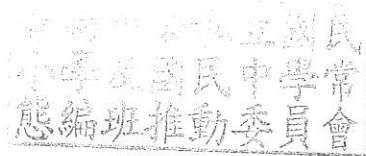 立國民
小學及國民中學常
態編班推動委員會